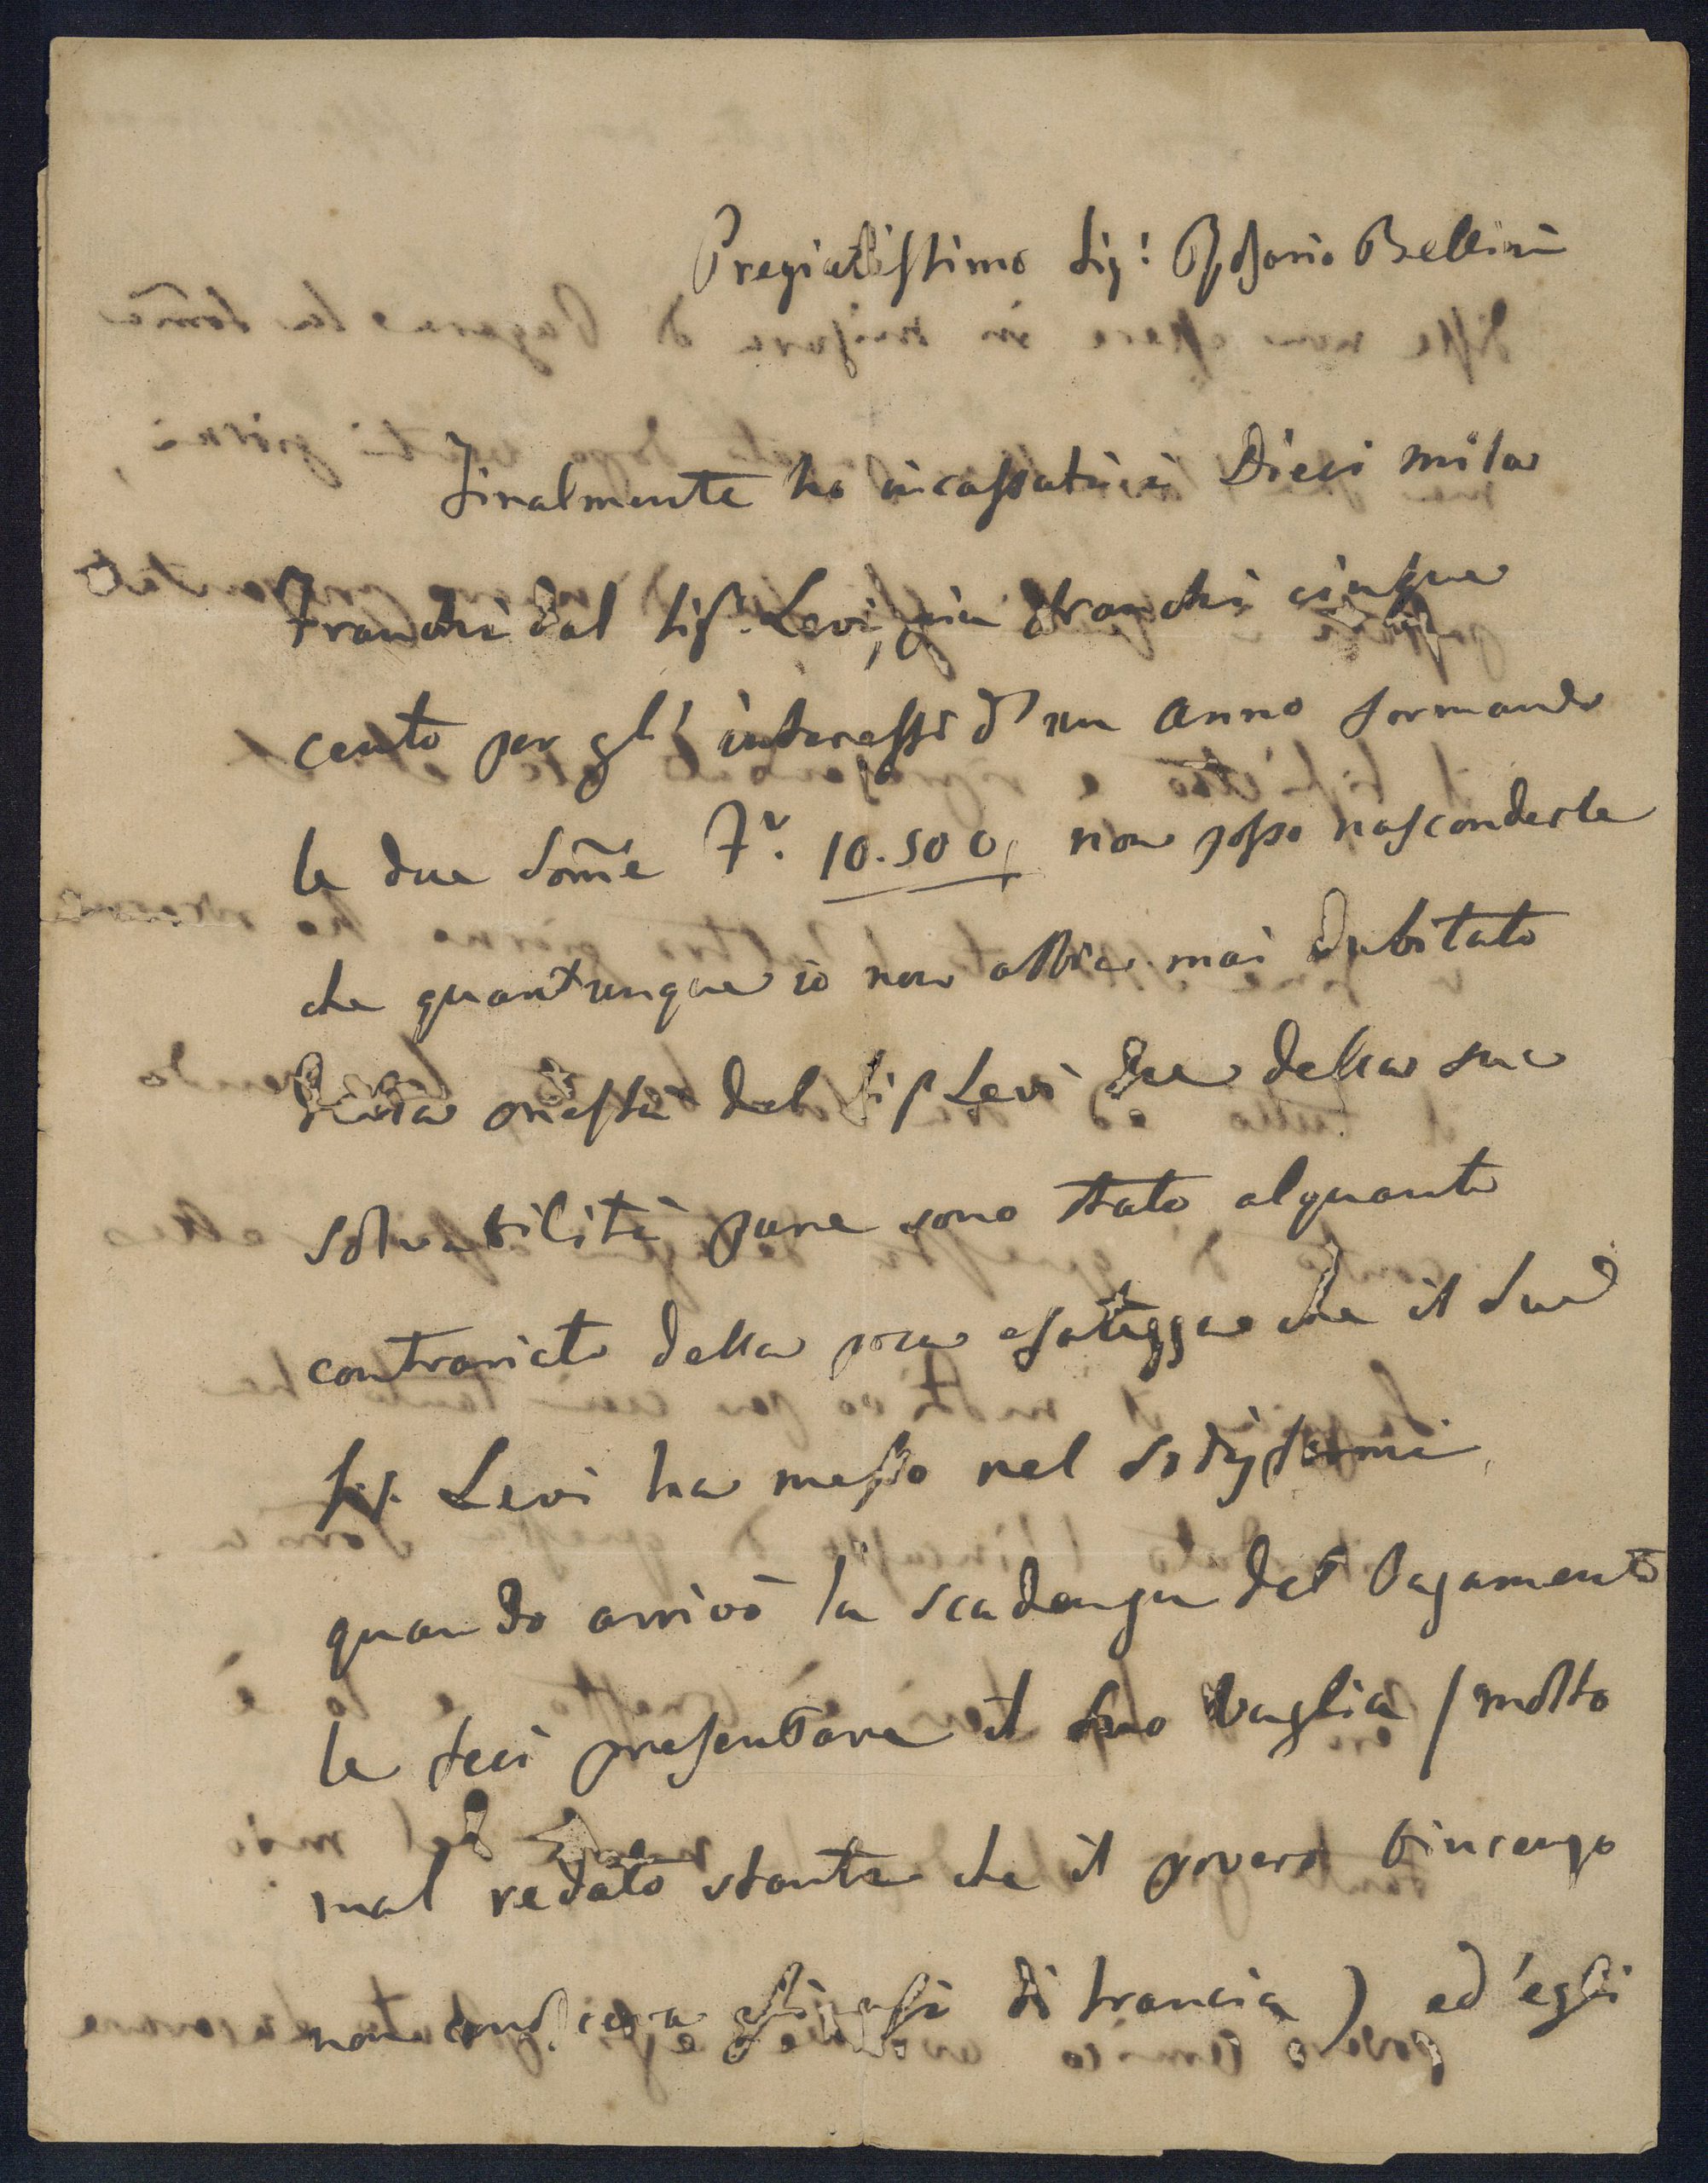 Pregiatissimo Sig: Rosario Bellini
Finalmente ho incassati i Dieci mila
Franchi dal Sigr. Levi, più Franchi cinque
cento per gl'interessi d'un anno formando
le due Some Fr. 10.500, non posso nasconderle
che quantunque io non abbia mai dubitato
onestà del Sig Levi della sua
solvabilità pure sono stato alquanto
contrariato della poca esatezza che il Sud
Sig. Levi ha messo nel sodisfarmi,
quando arrivò la scadenza del Pagamento
le feci presentare il suo Vaglia (molto
mal redato stante che il povero Vincenzo
non conosceva gli usi di Francia) ed'egli